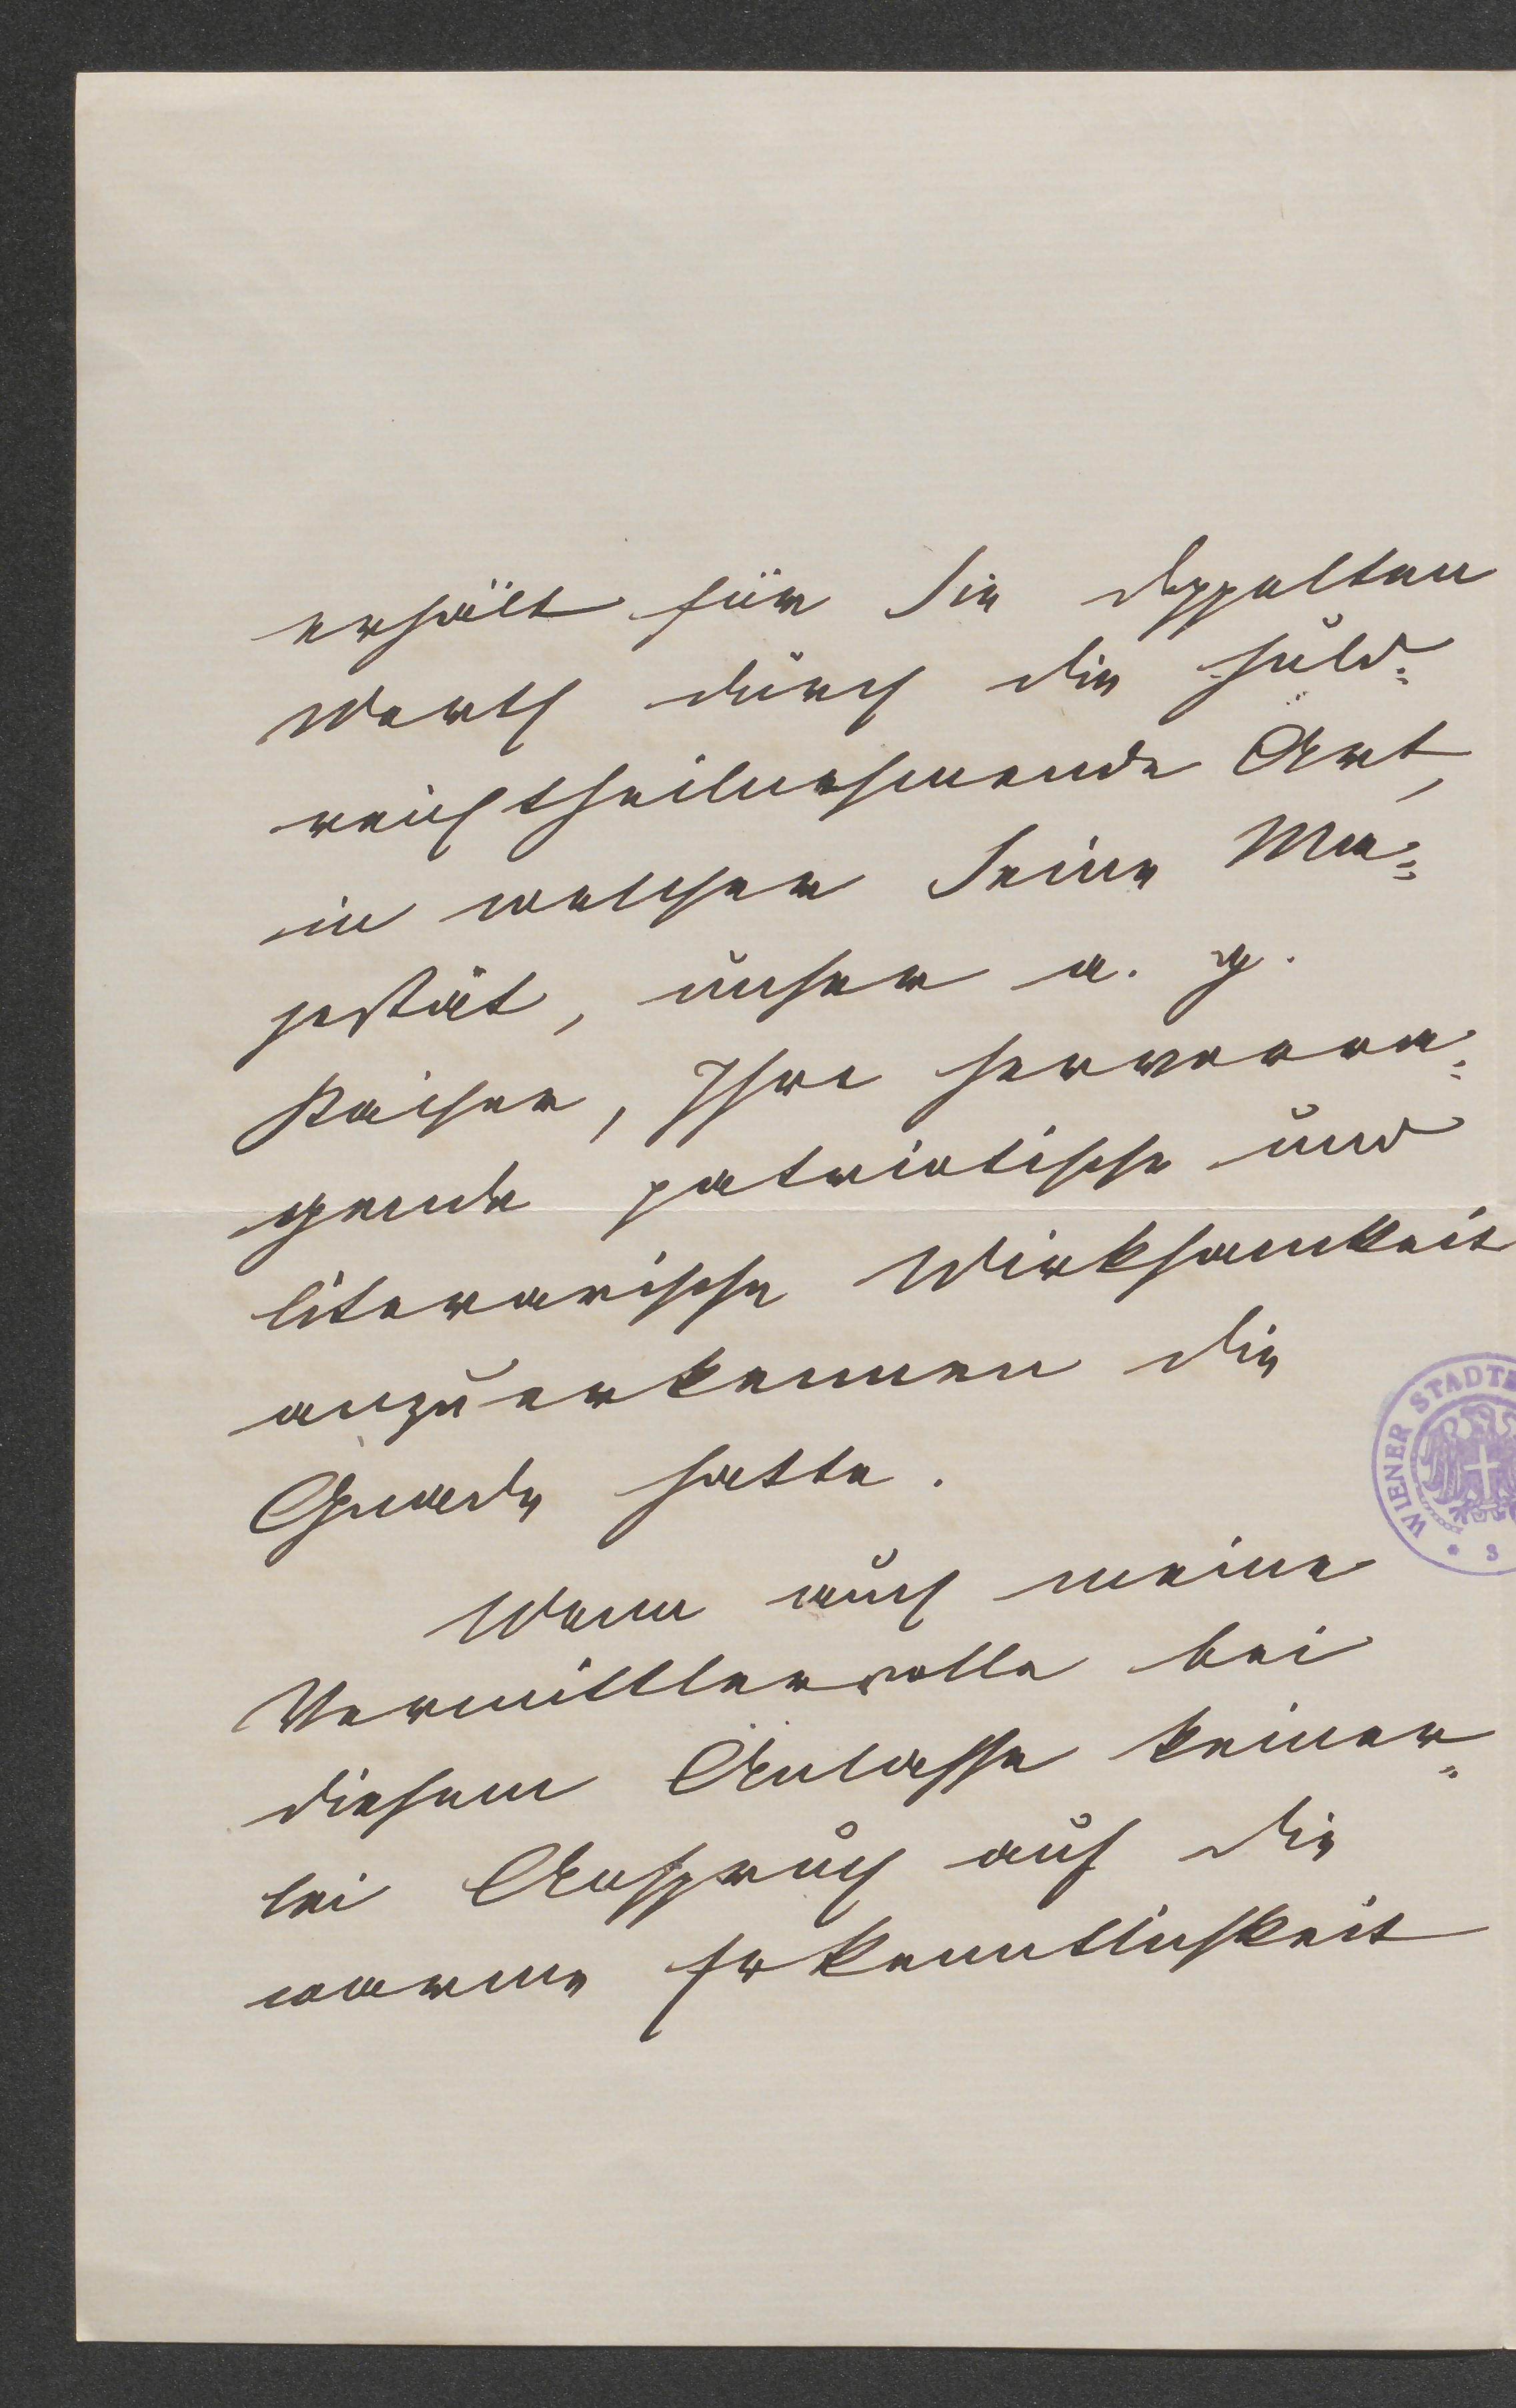 erhält für Sie doppelten
Werth durch die huld-
reich theilnehmende Art,
in welcher Seine Ma-
jestät, unser a. g.
Kaiser, Ihre hervorra-
gende patriotische und
literarische Wirksamkeit
anzuerkennen die
Gnade hatte.
Wenn auch meine
Vermittlerrolle bei
diesem Anlasse keiner-
lei Anspruch auf die
warme Erkenntlichkeit
WIENER STADT
* 3